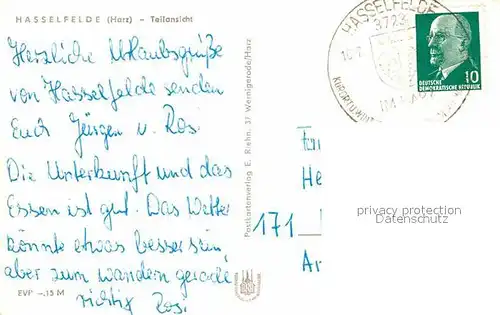 HASSELFELDE (Harz) – Teilansicht
Herzliche Urlaubsgrüße
von Hasselfelde senden
Euch Jürgen u. Ros.
Die Unterkunft und das
Essen ist gut. Das Wetter
könnte etwas besser sein,
aber zum wandern gerade
richtig Ros.
EVP –.15 M
Postkartenverlag E. Riehn, 37 Wernigerode/Harz
HASSELFELDE
3723
10
DEUTSCHE
DEMOKRATISCHE REPUBLIK
IM HARZ
171
He
privacy protection
Datenschutz